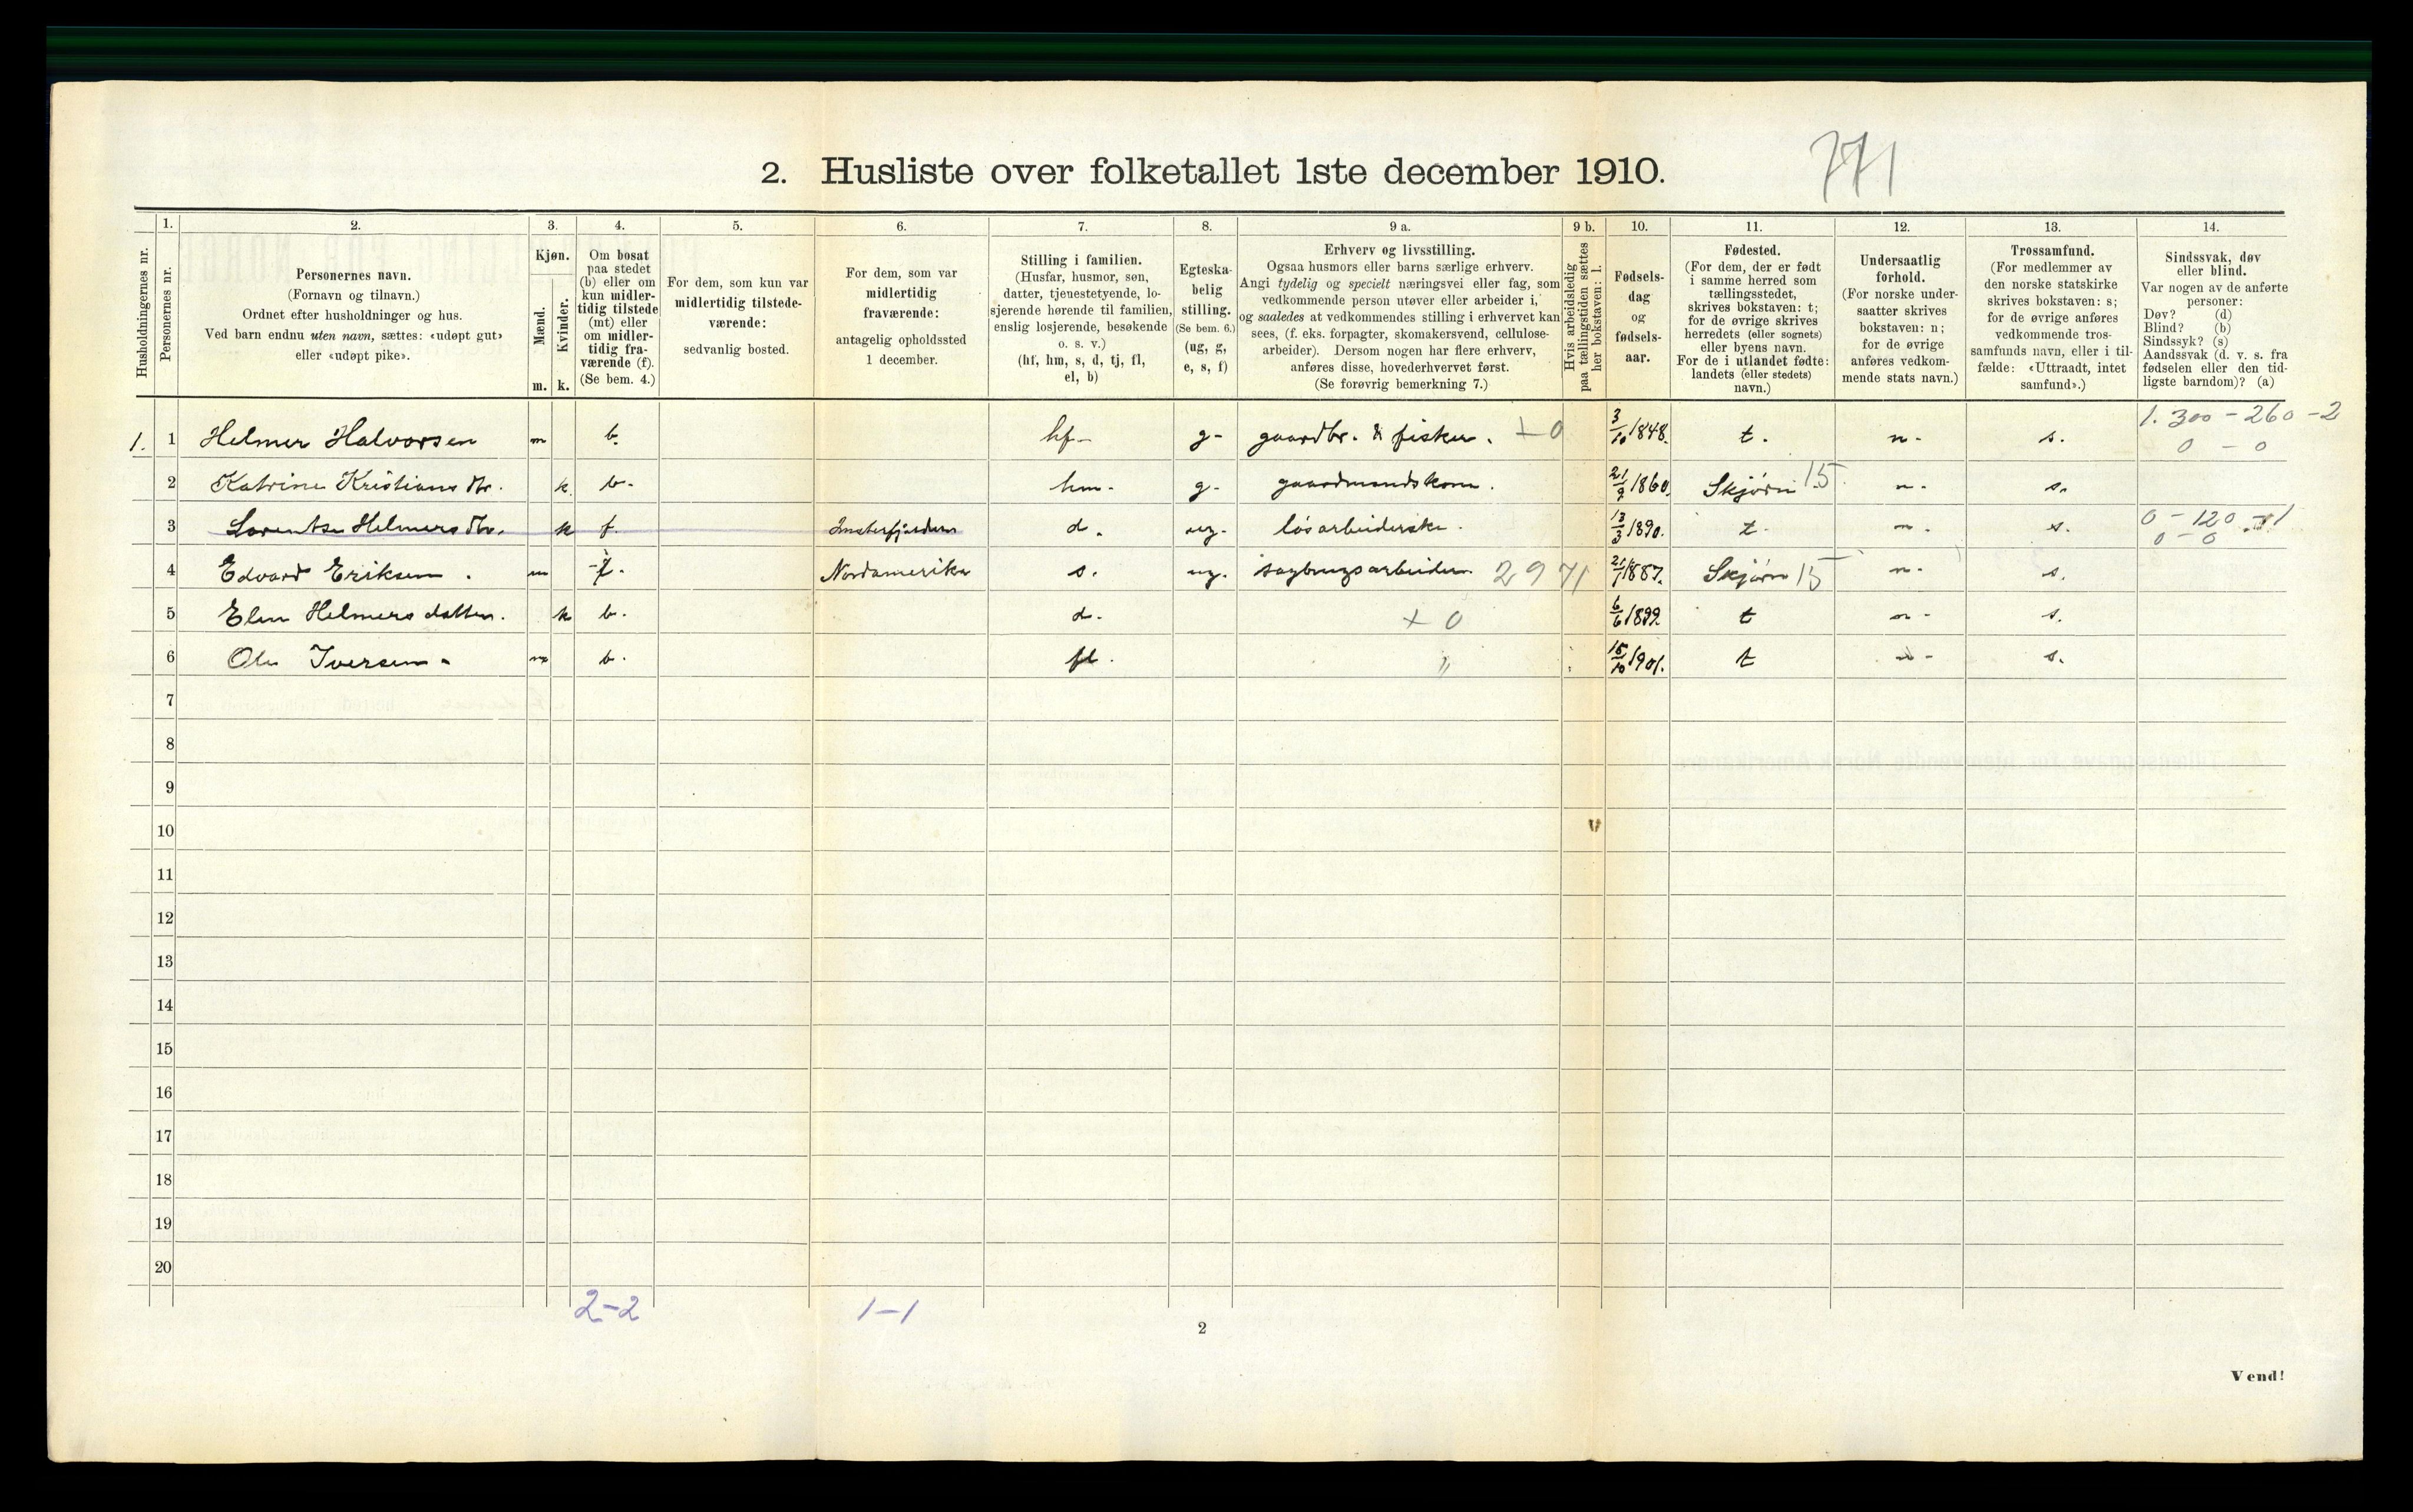 2. Husliste over folketallet 1ste december 1910.
771
Husholdningernes nr.
1.
Personernes nr.
2.
Personernes navn.
(Fornavn og tilnavn.)
Ordnet efter husholdninger og hus.
Ved barn endnu uten navn, sættes: «udøpt gut»
eller «udøpt pike».
3.
Kjøn.
Mænd.
Kvinder.
m.
k.
4.
Om bosat
paa stedet
(b) eller om
kun midler-
tidig tilstede
(mt) eller
om midler-
tidig fra-
værende (f).
(Se bem. 4.)
5.
For dem, som kun var
midlertidig tilstede-
værende:
sedvanlig bosted.
6.
For dem, som var
midlertidig
fraværende:
antagelig opholdssted
1 december.
7.
Stilling i familien.
(Husfar, husmor, søn,
datter, tjenestetyende, lo-
sjerende hørende til familien,
enslig losjerende, besøkende
o. s. v.)
(hf, hm, s, d, tj, fl,
el, b)
8.
Egteska-
belig
stilling.
(Se bem. 6.)
(ug, g,
e, s, f)
9 a.
Erhverv og livsstilling.
Ogsaa husmors eller barns særlige erhverv.
Angi tydelig og specielt næringsvei eller fag, som
vedkommende person utøver eller arbeider i,
og saaledes at vedkommendes stilling i erhvervet kan
sees, (f. eks. forpagter, skomakersvend, cellulose-
arbeider). Dersom nogen har flere erhverv,
anføres disse, hovederhvervet først.
(Se forøvrig bemerkning 7.)
9 b.
Hvis arbeidsledig
paa tællingstiden sættes
her bokstaven: l.
10.
Fødsels-
dag
og
fødsels-
aar.
11.
Fødested.
(For dem, der er født
i samme herred som
tællingsstedet,
skrives bokstaven: t;
for de øvrige skrives
herredets (eller sognets)
eller byens navn.
For de i utlandet fødte:
landets (eller stedets)
navn.)
12.
Undersaatlig
forhold.
(For norske under-
saatter skrives
bokstaven: n;
for de øvrige
anføres vedkom-
mende stats navn.)
13.
Trossamfund.
(For medlemmer av
den norske statskirke
skrives bokstaven: s;
for de øvrige anføres
vedkommende tros-
samfunds navn, eller i til-
fælde: «Uttraadt, intet
samfund».)
14.
Sindssvak, døv
eller blind.
Var nogen av de anførte
personer:
Døv? (d)
Blind? (b)
Sindssyk? (s)
Aandssvak (d. v. s. fra
fødselen eller den tid-
ligste barndom)? (a)
1. 300 - 260 - 2
1. 1 Helmer Halvorsen m b. hf- g- gaardbr. & fisker. + 0 3/10 1848. t. n- s. 0 - 0
2 Katrine Kristians dtr. k. b- hm- g- gaardmandskone. 21/9 1860. Skjørn 15 n- s.
3 Lorentse Helmers dtr. k f. d. ug- løsarbeiderske. 13/3 1890. t- n- s. 0 - 120 - 1
0 - 0
4 Edvard Eriksen. m f. Nordamerika s. ug. sagbrugsarbeider. 2971 21/1 1887. Skjørn 15 n- s.
5 Elen Helmers datter. k b. d. + 0 6/6 1899. t n- s.
6 Ole Iversen - m b. fl. " 15/10 1901. t n- s.
7
8
9
10
11
12
13
14
15
16
17
18
19
20
2-2
1-1
2
Vend!